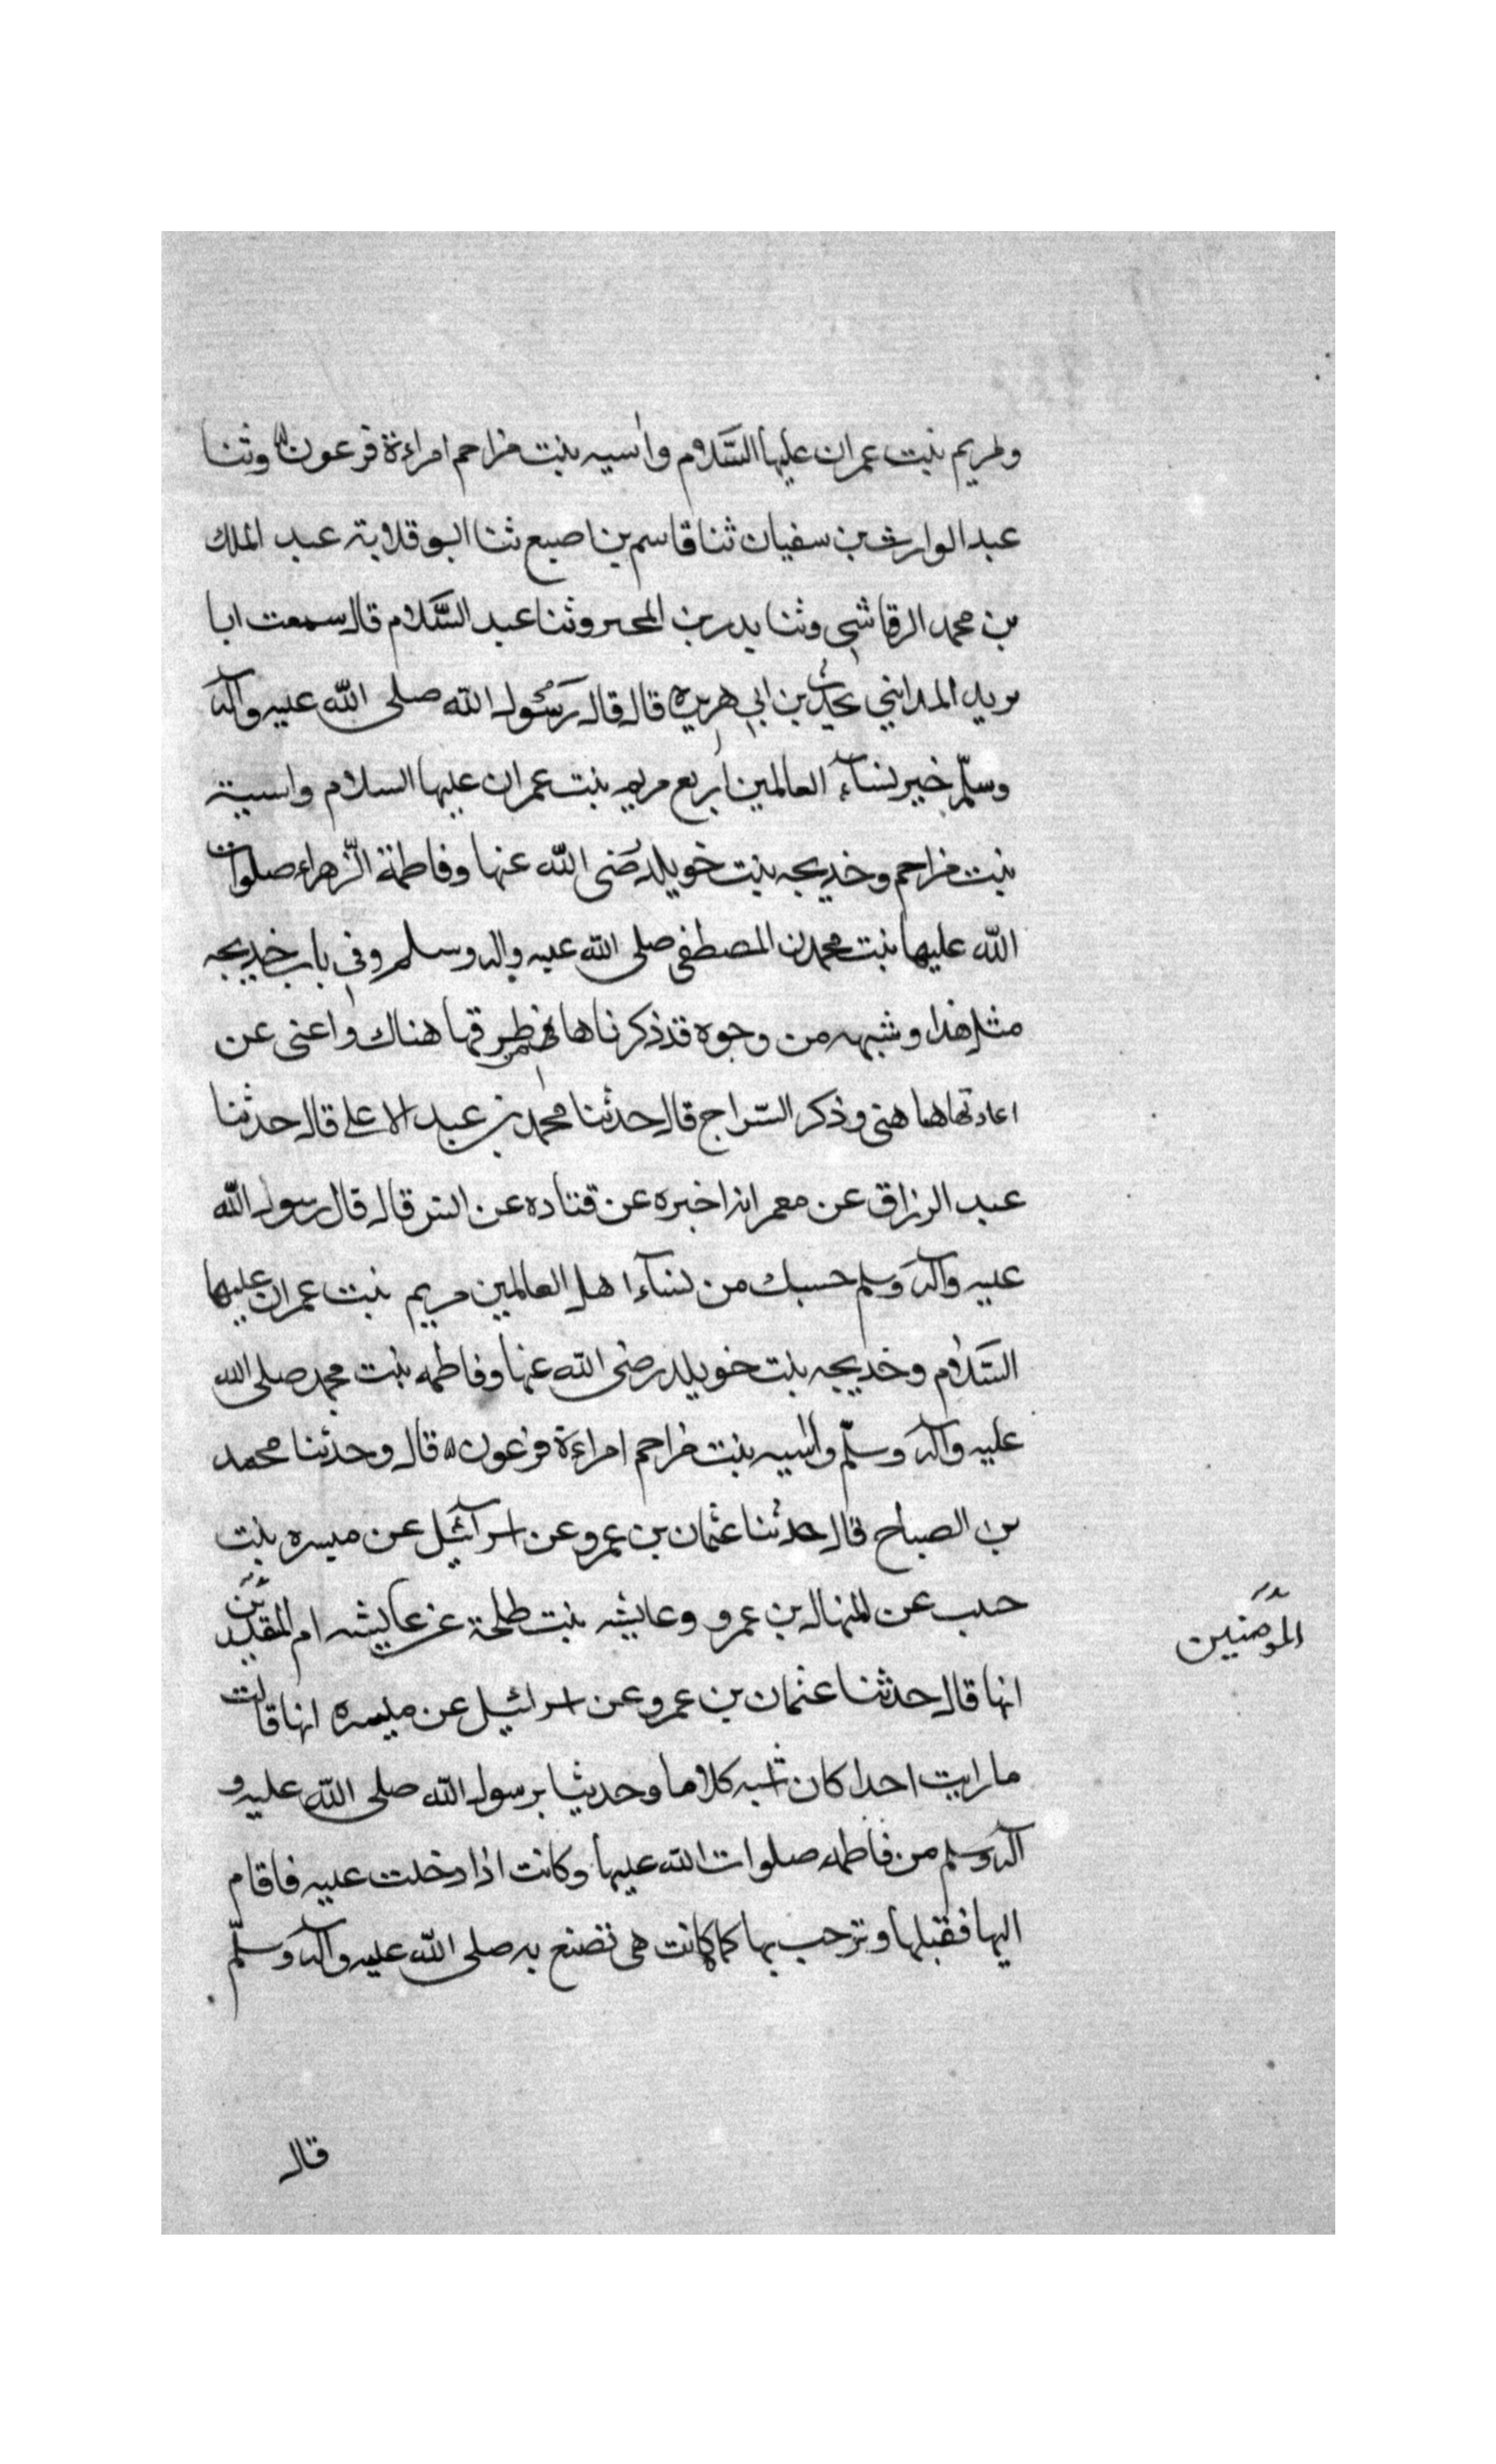 ومريم بنت عمران عليها السَّلام واسيه بنت مزاحم امراءة فرعون وثنا
عبد الوارث بن سفيان ثنا قاسم بن اصبع ثنا ابو قلابة عبد الملك
بن محمد الرقاشي وثنا بدر بن المحبر وثنا عبد السَّلام قال سمعت ابا
يزيد المدايني يحدث بن ابي هريره قال قال رَسُول الله صلى الله عليه وآله
وسلّم خير نسآء العالمين اربع مريم بنت عمران عليها السلام واسية
بنت مزاحم وخديجه بنت خويلد رَضى الله عنها وفاطمة الزّهراء صلوات
الله عليها بنت محمدن المصطفى صلى الله عليه واله وسلم وفي باب خديجه
مثل هذا وشبهه من وجوه قد ذكرناها هناك واعنى عن
اعادتها هاهنى وذكر السّراج قال حدثنا محمد بن عبد الاعلى قال حدثنا
عبد الرزاق عن معمر انه اخبره عن قتاده عن انس قال قال رسول الله
عليه وآله وسلم حسبك من نسآء اهل العالمين مريم بنت عمران عليها
السَّلام وخديجه بنت خويلد رضى الله عنها وفاطمه بنت محمد صلى الله
عليه وآله وسلّم واسيه بنت مزاحم امراءة فرعون قال وحدثنا محمد
بن الصباح قال حدثنا عثمان بن عمرو عن اسرآئيل عن ميسره بنت
حبيب عن المنهال بن عمرو وعايشه بنت طلحة عن عايشه ام
المؤمنين
انها قال حدثنا عثمان بن عمرو عن اسرائيل عن ميسره انها قالت
ما رايت احدا كان اشبه كلاما وحديثا برسول الله صلى الله عليه و
آله وسلم من فاطمه صلوات الله عليها وكانت اذا دخلت عليه فاقام
اليها فقبلها وترحب بها كما كانت هى تصنع به صلى الله عليه وآله وسلّم
قال